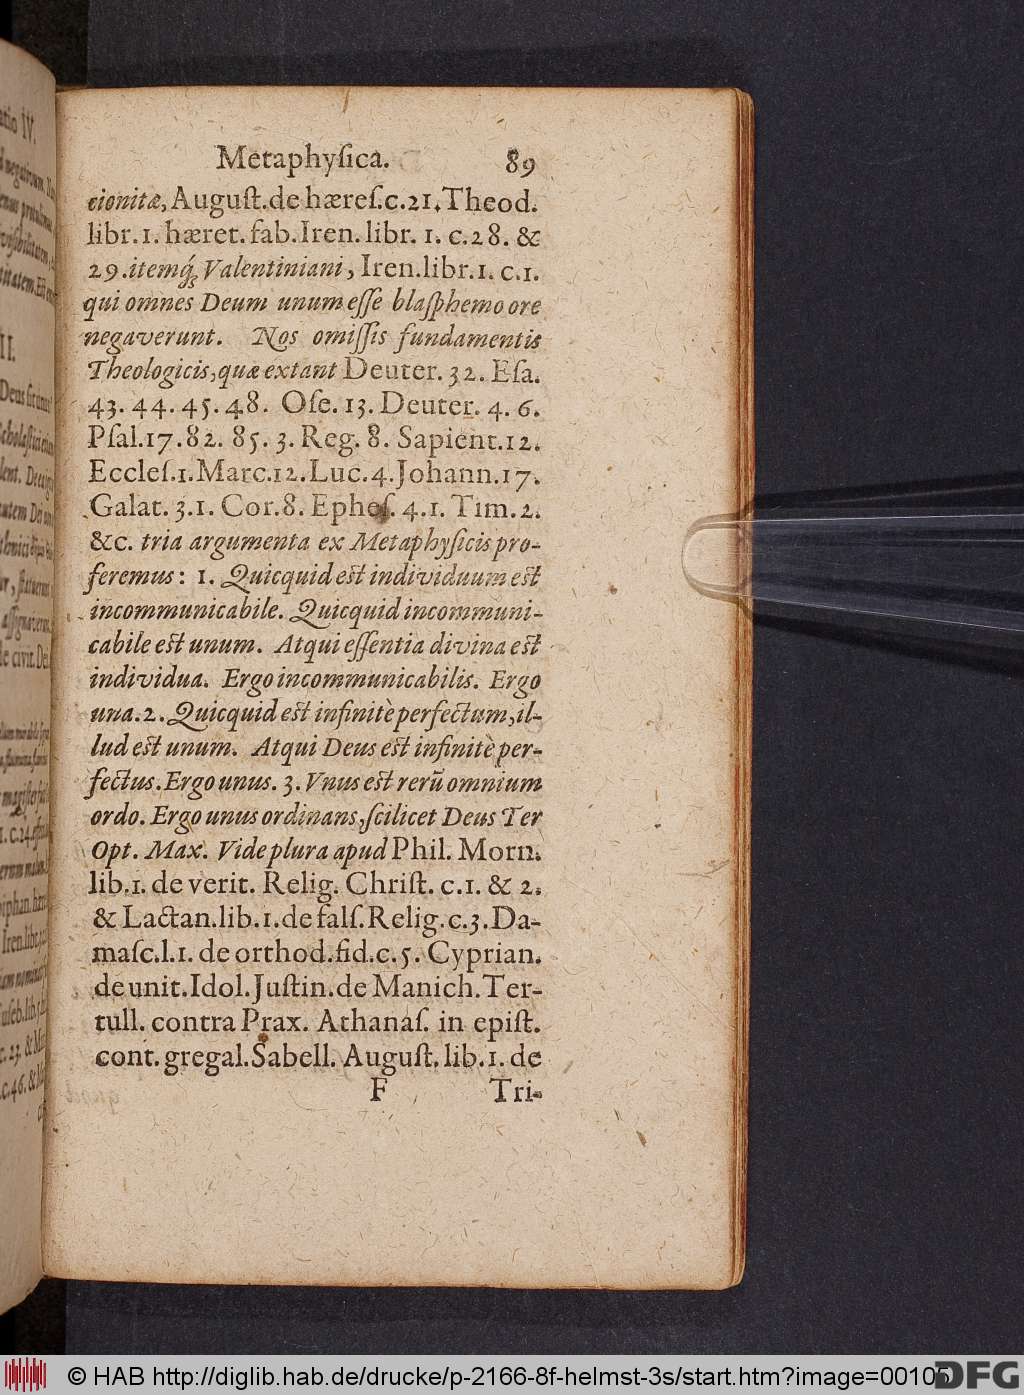 Metaphyſica. 89
cionitæ, Auguſt. de hæreſ. c. 21. Theod.
libr. 1. hæret. fab. Iren. libr. 1. c. 28. &
29. itemq́; Valentiniani, Iren. libr. 1. c. 1.
qui omnes Deum unum eſſe blaſphemo ore
negaverunt. Nos omiſſis fundamentis
Theologicis, quæ extant Deuter. 32. Eſa.
43. 44. 45. 48. Oſe. 13. Deuter. 4. 6.
Pſal. 17. 82. 85. 3. Reg. 8. Sapient. 12.
Eccleſ. 1. Marc. 12. Luc. 4. Johann. 17.
Galat. 3. 1. Cor. 8. Epheſ. 4. 1. Tim. 2.
&c. tria argumenta ex Metaphyſicis pro-
feremus: 1. Quicquid est individuum est
incommunicabile. Quicquid incommuni-
cabile est unum. Atqui eſſentia divina est
individua. Ergo incommunicabilis. Ergo
una. 2. Quicquid est infinitè perfectum, il-
lud est unum. Atqui Deus est infinitè per-
fectus. Ergo unus. 3. Vnus est rerũ omnium
ordo. Ergo unus ordinans, ſcilicet Deus Ter
Opt. Max. Vide plura apud Phil. Morn.
lib. 1. de verit. Relig. Chriſt. c. 1. & 2.
& Lactan. lib. 1. de falſ. Relig. c. 3. Da-
maſc. l. 1. de orthod. fid. c. 5. Cyprian.
de unit. Idol. Juſtin. de Manich. Ter-
tull. contra Prax. Athanaſ. in epiſt.
cont. gregal. Sabell. Auguſt. lib. 1. de
F Tri-
© HAB http://diglib.hab.de/drucke/p-2166-8f-helmst-3s/start.htm?image=00105
DFG